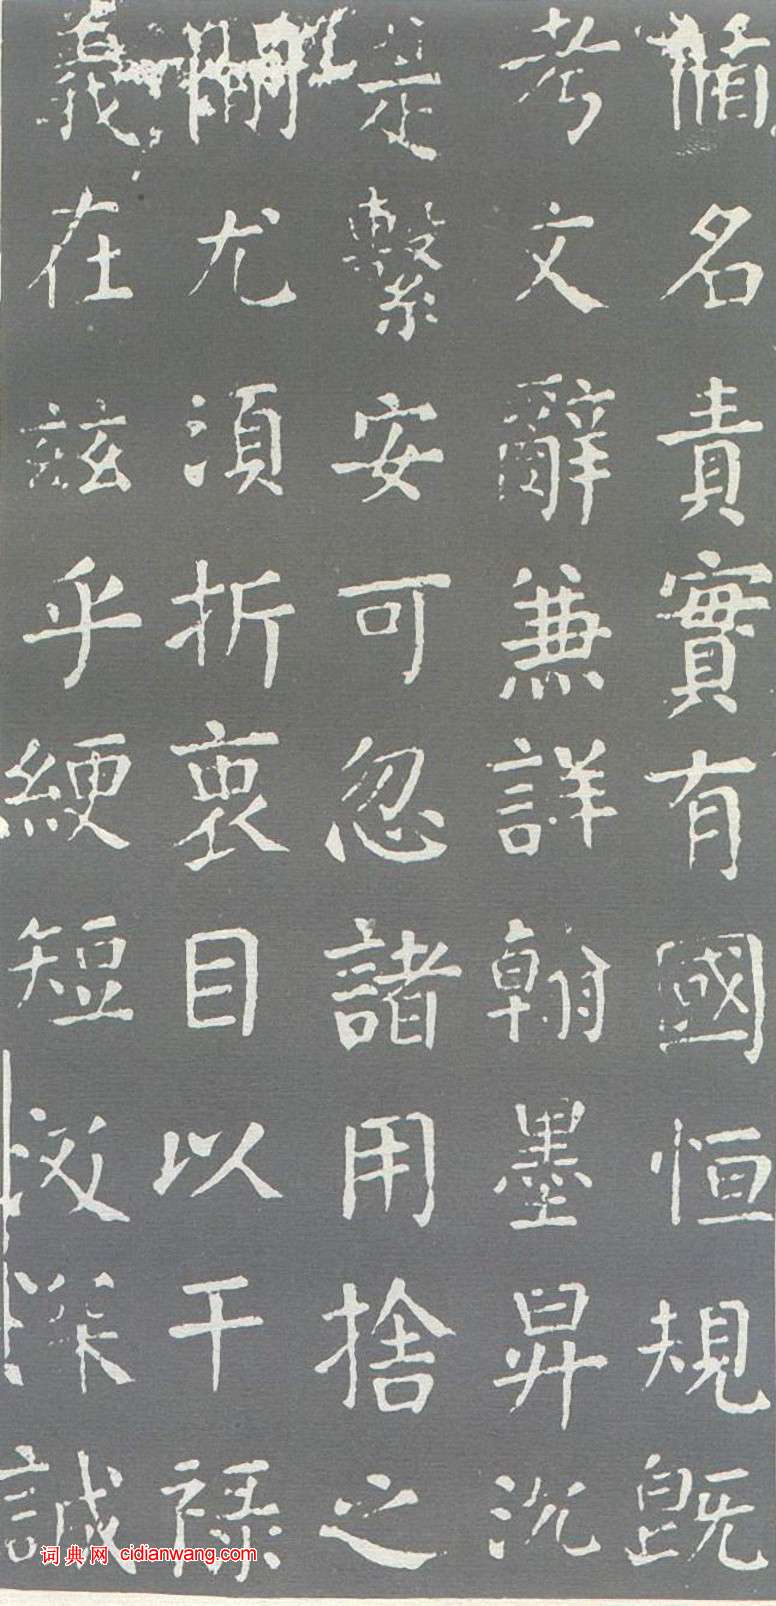 循名責實有國恒規既
考文辭兼詳翰墨昇沉
是繫安可忽諸用捨之
間尤湏折衷目以干祿
義在兹乎綆短汲深誠
词典网 cidianwang.com